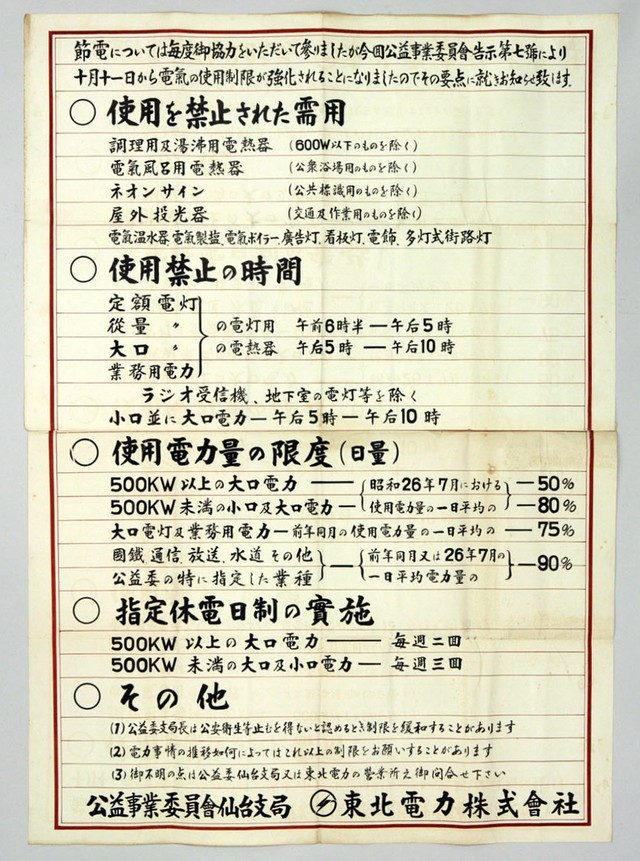 節電については毎度御協力をいただいて參りましたが今回公益事業委員會告示第七號により
十月十一日から電氣の使用制限が強化されることになりましたのでその要点に就きお知らせ致します。
○ 使用を禁止された需用
調理用及湯沸用電熱器 (600W以下のものを除く)
電氣風呂用電熱器 (公衆浴場用のものを除く)
ネオンサイン (公共標識用のものを除く)
屋外投光器 (交通及作業用のものを除く)
電氣温水器、電氣製塩、電氣ボイラー、廣告灯、看板灯、電飾、多灯式街路灯
○ 使用禁止の時間
定額電灯
從量 〃 の電灯用 午前6時半 ― 午后5時
大口 〃 の電熱器 午后5時 ― 午后10時
業務用電力
ラジオ受信機、地下室の電灯等を除く
小口並に大口電力 ― 午后5時 ― 午后10時
○ 使用電力量の限度 (日量)
500KW 以上の大口電力 ― 昭和26年7月における ― 50%
500KW 未満の小口及大口電力 ― 使用電力量の一日平均の ― 80%
大口電灯及業務用電力 ― 前年同月の使用電力量の一日平均の ― 75%
國鐵、通信、放送、水道その他 ― 前年同月又は26年7月の ― 90%
公益委の特に指定した業種 一日平均電力量の
○ 指定休電日制の實施
500KW 以上の大口電力 ― 毎週二回
500KW 未満の大口及小口電力 ― 毎週三回
○ その他
(1) 公益委支局長は公安衛生等止むを得ないと認めるとき制限を緩和することがあります
(2) 電力事情の推移如何によってはこれ以上の制限をお願いすることがあります
(3) 御不明の点は公益委仙台支局又は東北電力の営業所え御問合せ下さい
公益事業委員會仙台支局 東北電力株式會社